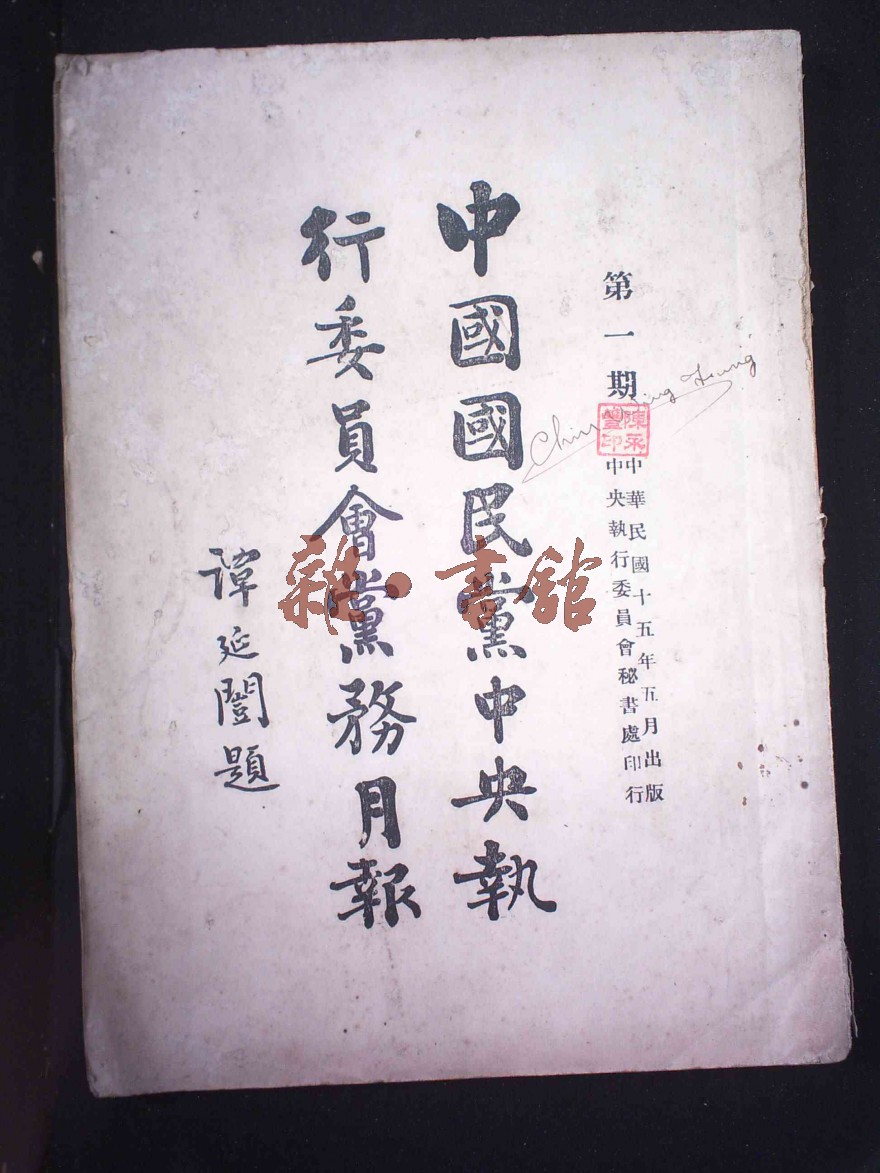 第一期
中華民國十五年五月出版
中央執行委員會秘書處印行
陳永
璽印
中國國民黨中央執
行委員會黨務月報
譚延闓題
雜·書舘